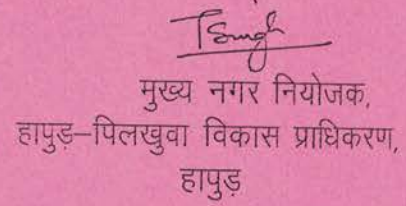 TSingh
मुख्य नगर नियोजक,
हापुड़–पिलखुवा विकास प्राधिकरण,
हापुड़